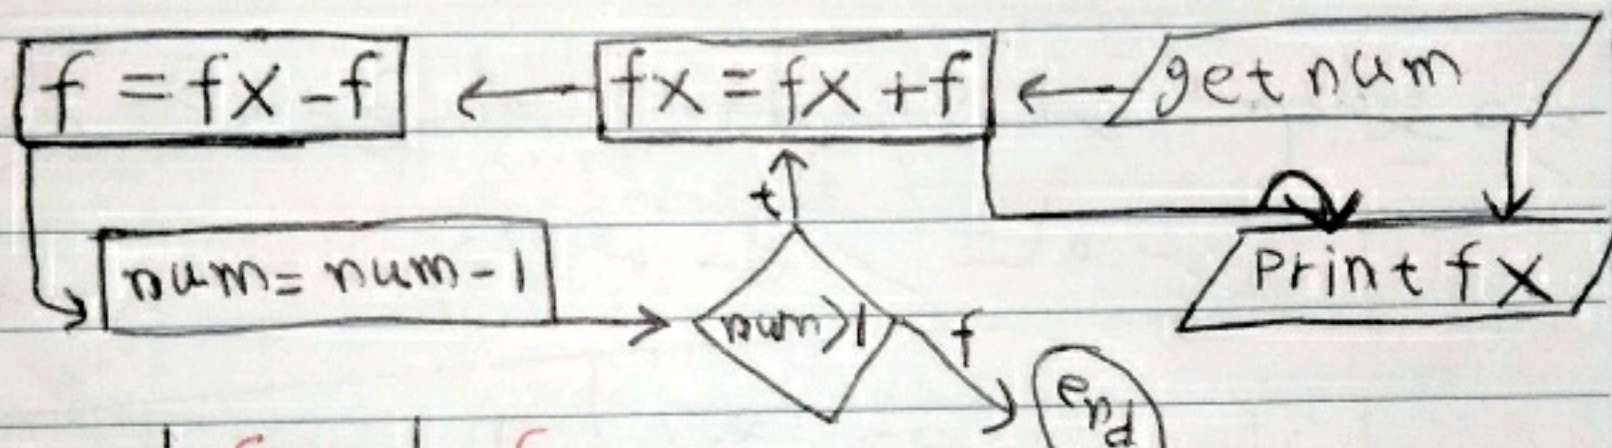 f = fx - f
fx = fx + f
get num
t
num = num - 1
num>1
f
print fx
end